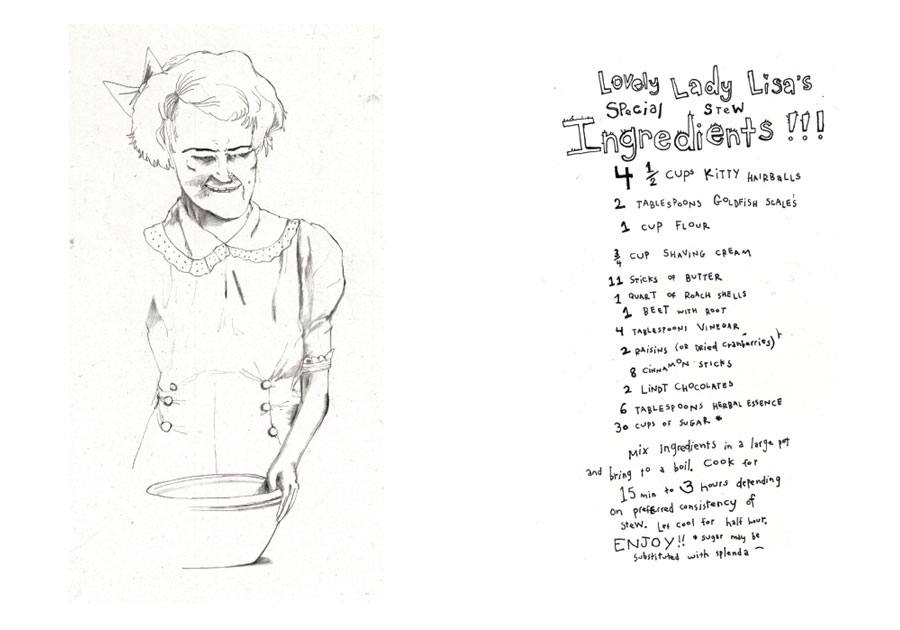 Lovely Lady Lisa's
Special Stew
Ingredients !!!
4 1/2 cups Kitty Hairballs
2 Tablespoons Goldfish Scale's
1 cup Flour
3/4 cup Shaving Cream
11 Sticks of Butter
1 Quart of Roach Shells
1 Beet with Root
4 Tablespoons Vinegar
2 Raisins (or Dried Cranberries)
8 Cinnamon Sticks
2 Lindt Chocolates
6 Tablespoons Herbal Essence
30 cups of Sugar *
Mix ingredients in a large pot
and bring to a boil. Cook for
15 min to 3 hours depending
on preferred consistency of
stew. Let cool for half hour.
ENJOY!! * sugar may be
substituted with splenda